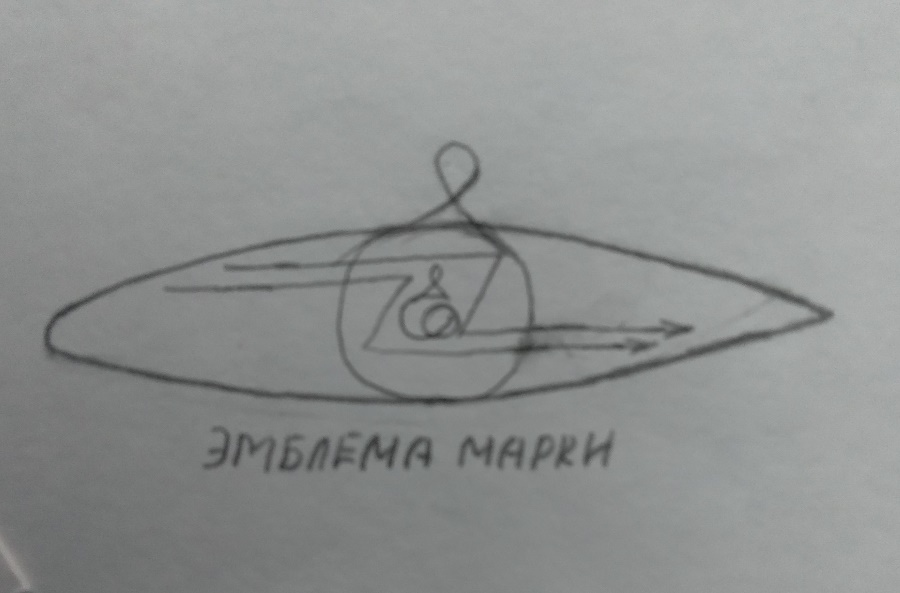 ЭМБЛЕМА МАРКИ